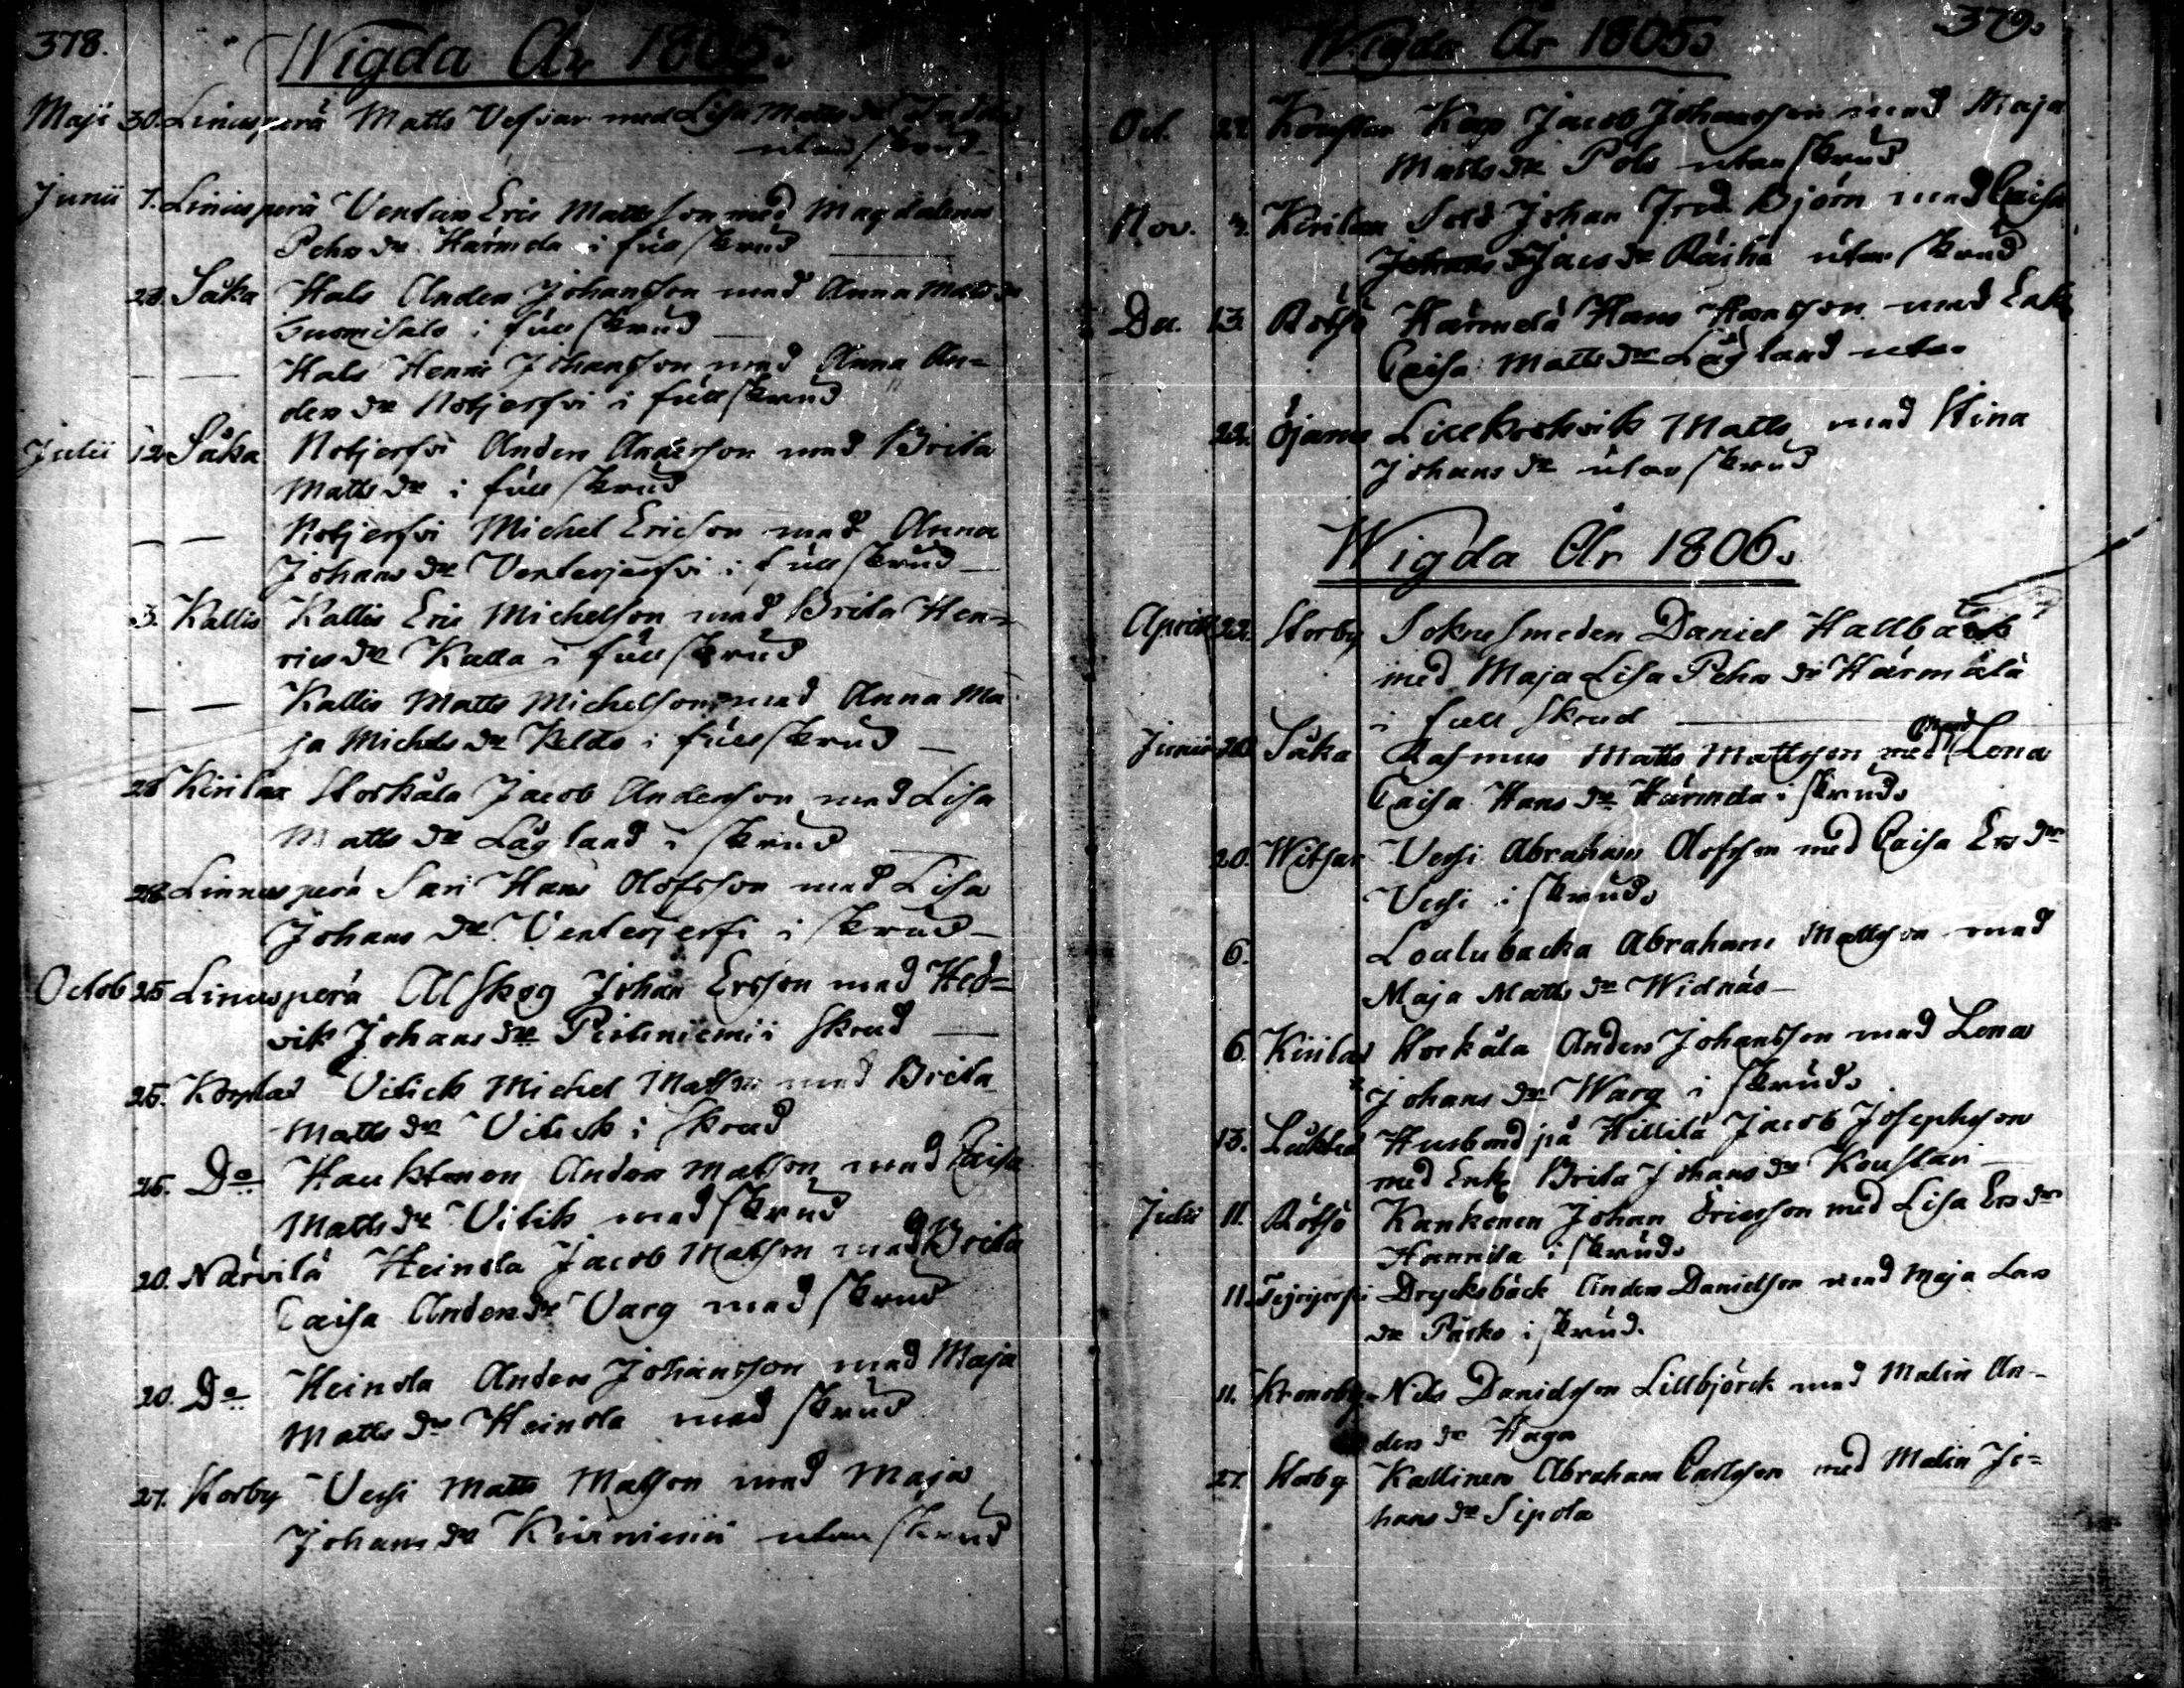 378.
Wigda År 1805.
Maji 30. Linusperä Matts Vessar med Lisa Matts dr
utan skrud
Junii 7. Linusperä Ventus Eric Mattsson med Magdalena
Pehrs dr Härmela i full skrud
28. Såka Hals Anders Johansson med Anna Matts dr
Suomisalo i full skrud
— — Hals Henric Johansson med Anna An=
ders dr Notjerfvi i full skrud
Julii 12 Såka Notjerfvi Anders Anderson med Brita
Matts dr i full skrud
— — Notjerfvi Michel Ericson med Anna
Johans dr Venterjerfvi i full skrud —
3. Kallis Kallis Eric Michelson med Brita Hen=
rics dr Kalla i full skrud
— — Kallis Matts Michelson med Anna Ma
ja Michels dr Keldo i full skrud —
28 Kirilax Storkåla Jacob Anderson med Lisa
Matts dr Lågland i skrud
28. Linnusperä Sari Hans Olofsson med Lisa
Johans dr Venterjerfi i skrud —
Octob 25 Linusperä Alskog Johan Ersson med Hed=
vik Johans dr Pirtiniemi i skrud —
25. Korplax Vitick Michel Matsson med Brita
Matts dr Vitick i skrud
26. Do Hauktonen Anders Matson med Caisa
Matts dr Vitik med skrud
20. Närvilä Heinola Jacob Matson med Brita
Caisa Anders dr Varg med skrud
20. Do Heinola Anders Johansson med Maja
Matts dr Heinola med skrud
27. Storby Vessi Matts Matson med Maja
Johans dr Kiviniemi utan skrud
379.
Wigda År 1805.
Oct. 27. Kap Jacob Johansson med Maja
Matts dr Pols utan skrud
Nov. Kirilax Sold Johan Fred Björn med Caisa
Johans Jacs dr Räihä utan skrud
Dec. 13. Rötsö Härmälä Hans Hansson med Enk
Caisa Matts dr Lågland utan
22. Öjanes Lillkrokvik Matts med Stina
Johans dr utan skrud
Wigda År 1806.
April 22. Storby Soknesmeden Daniel Hallbäck
med Maja Lisa Pehrs dr Härmälä
i full skrud
Junii 20. Såka Rasmus Matts Mattsson med Lena
Caisa Hans dr Härmälä i skrud.
20. Witsar Vessi Abraham Olofsson med Caisa Ers dr
Vessi i skrud.
6. Loulubacka Abraham Mattsson med
Maja Matts dr Widnäs —
6. Kirilax Storkåla Anders Johansson med Lena
Johans dr Warg i skrud.
13. Husbond på Hillilä Jacob Josephsson
med Enk Brita Johans dr Koustari
Julii 11. Rötsö Kankonen Johan Ericsson med Lisa Ers dr
Hannila i skrud.
11. Drycksbäck Anders Danielson med Maja Lars
dr Päsko i skrud.
11. Kronoby Nils Danielsson Lillbjörck med Malin An=
ders dr Haga
27. Storby Kallinen Abraham Carlsson med Malin Jo=
hans dr Sipola